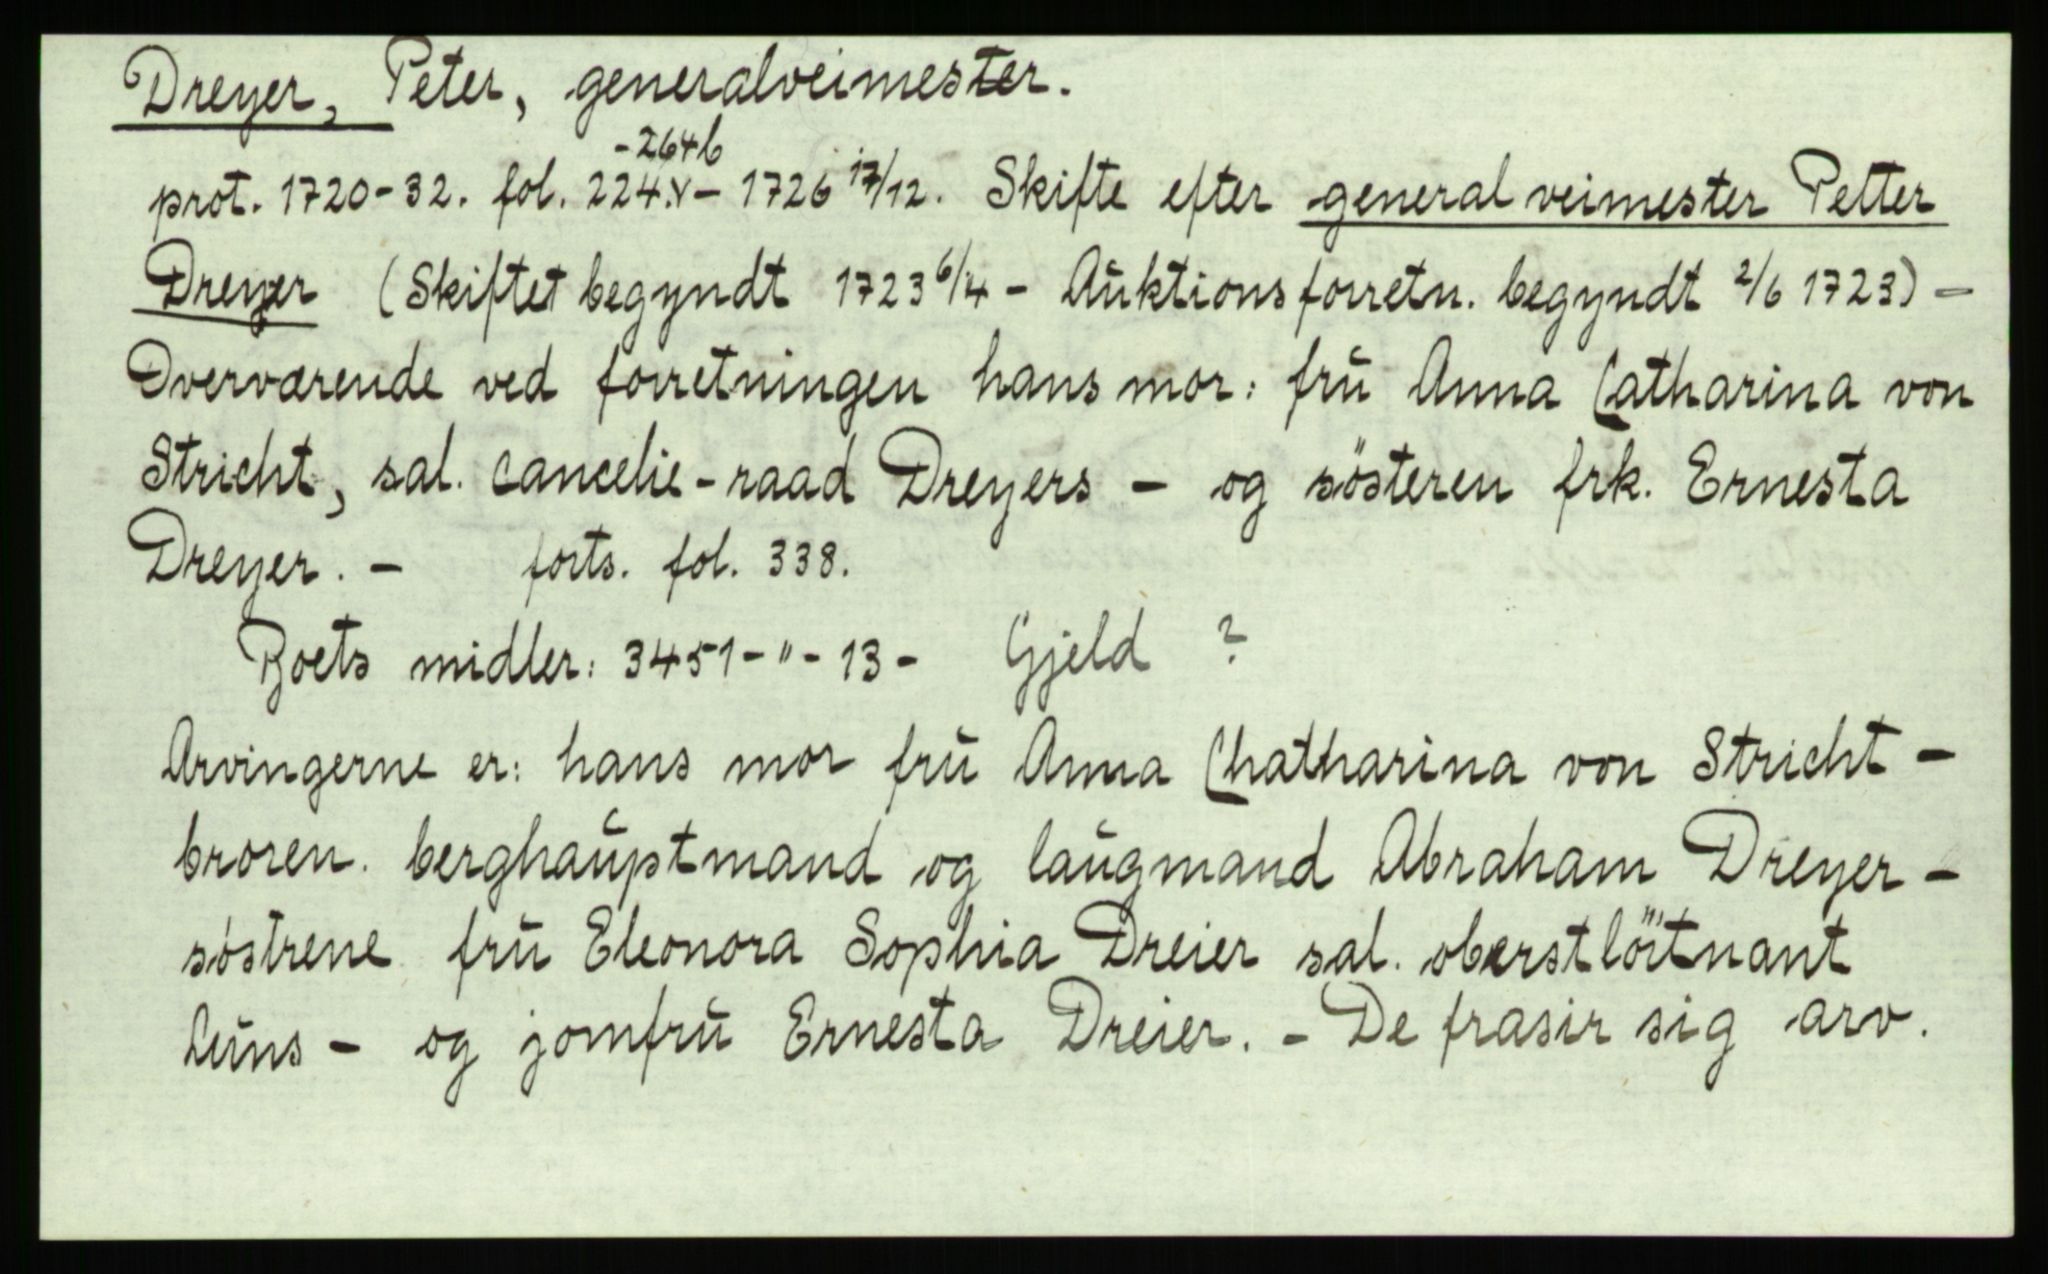 Dreyer, Peter, generalveimester.
-264b
prot. 1720-32. fol. 224.v- 1726 17/12. Skifte efter general veimester Petter
Dreyer (Skiftet begyndt 1723 6/4 - Auktionsforretn. begyndt 2/6 1723) -
Overværende ved forretningen hans mor: fru Anna Catharina von
Stricht, sal. cancelie-raad Dreyers - og sösteren frk. Ernesta
Dreyer. - forts. fol. 338.
Boets midler: 3451-"-13- Gjeld ?
Arvingerne er: hans mor fru Anna Chatharina von Stricht -
broren. berghauptmand og laugmand Abraham Dreyer -
söstrene fru Eleonora Sophia Dreier sal. oberstlöitnant
Luns - og jomfru Ernesta Dreier. - De frasir sig arv.